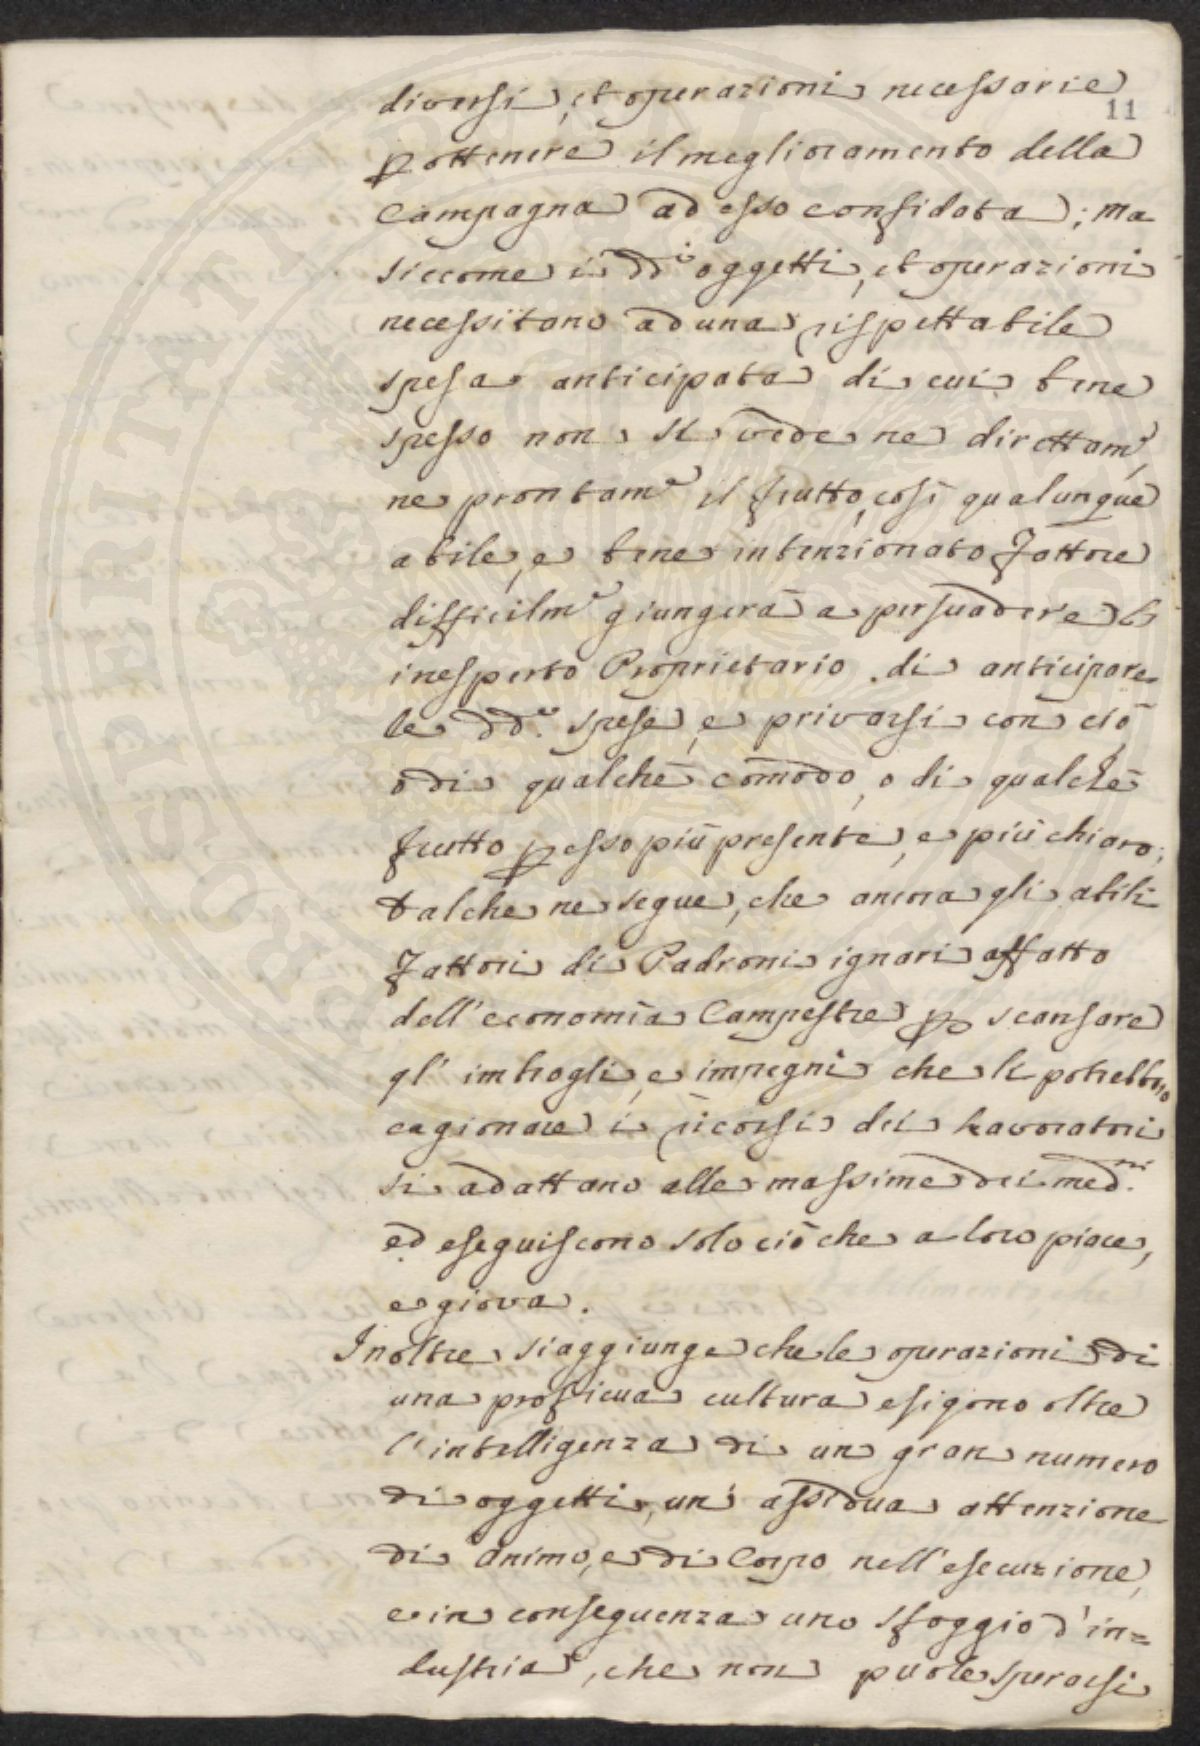 diversi, et operazioni necessarie
11
p ottenere il miglioramento della
Campagna ad esso confidata; ma
siccome i dd.i oggetti, et operazioni
necessitano ad una rispettabile
spesa anticipata di cui bene
spesso non si vede ne direttam.e,
ne prontam.e il frutto, così qualunque
abile, e bene intenzionato Fattore
difficilm.e giungerà a persuadere
inesperto Proprietario di anticipare
le dd.e spese, e privarsi con ciò
o di qualche comodo, o di qualche
frutto p esso più presente, e più chiaro;
talche ne segue, che ancora gli abili
Fattori di Padroni ignari affatto
dell'economia Campestre p scansare
gl'imbrogli, e impegni che li potrebbono
cagionare i ricorsi dei Lavoratori
si adattano alle massime dei med.mi
ed eseguiscono solo ciò che a loro piace,
e giova.
Inoltre si aggiunge che le operazioni di
una proficua cultura esigono oltre
l'intelligenza di un gran numero
di oggetti, un'assidua attenzione
di animo, e di Corpo nell'esecuzione,
e in conseguenza uno sfoggio d'in=
dustria, che non puole sperarsi
PROSPERITATI PUBLICAE